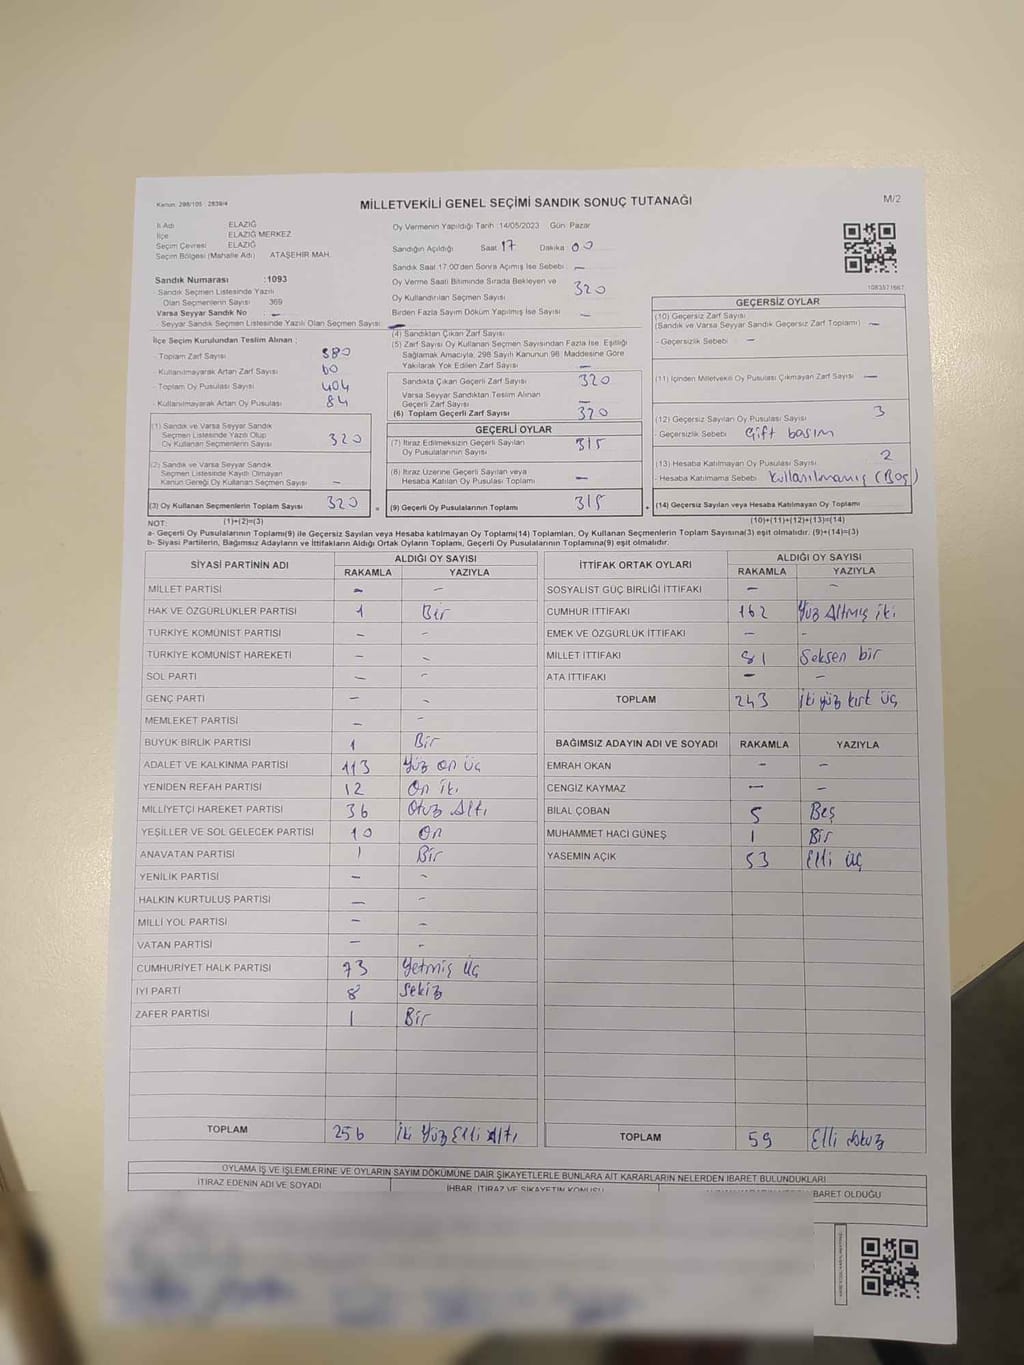 Kanun: 298/105 : 2839/4
MİLLETVEKİLİ GENEL SEÇİMİ SANDIK SONUÇ TUTANAĞI
M/2
İl Adı ELAZIĞ
İlçe ELAZIĞ MERKEZ
Seçim Çevresi ELAZIĞ
Seçim Bölgesi (Mahalle Adı) ATAŞEHİR MAH.
Sandık Numarası :1093
Sandık Seçmen Listesinde Yazılı
Olan Seçmenlerin Sayısı 369
Varsa Seyyar Sandık No –
- Seyyar Sandık Seçmen Listesinde Yazılı Olan Seçmen Sayısı: –
Oy Vermenin Yapıldığı Tarih :14/05/2023 Gün: Pazar
Sandığın Açıldığı Saat: 17 Dakika: 00
Sandık Saat 17:00'den Sonra Açılmış İse Sebebi : –
Oy Verme Saati Bitiminde Sırada Bekleyen ve
Oy Kullandırılan Seçmen Sayısı 320
Birden Fazla Sayım Döküm Yapılmış İse Sayısı –
1083571667
İlçe Seçim Kurulundan Teslim Alınan :
- Toplam Zarf Sayısı 380
- Kullanılmayarak Artan Zarf Sayısı 60
- Toplam Oy Pusulası Sayısı 404
- Kullanılmayarak Artan Oy Pusulası 84
(1) Sandık ve Varsa Seyyar Sandık
Seçmen Listesinde Yazılı Olup
Oy Kullanan Seçmenlerin Sayısı 320
(2) Sandık ve Varsa Seyyar Sandık
Seçmen Listesinde Kayıtlı Olmayan
Kanun Gereği Oy Kullanan Seçmen Sayısı –
(3) Oy Kullanan Seçmenlerin Toplam Sayısı 320 =
(1)+(2)=(3)
(4) Sandıktan Çıkan Zarf Sayısı
(5) Zarf Sayısı Oy Kullanan Seçmen Sayısından Fazla İse, Eşitliği
Sağlamak Amacıyla, 298 Sayılı Kanunun 98. Maddesine Göre
Yakılarak Yok Edilen Zarf Sayısı –
Sandıkta Çıkan Geçerli Zarf Sayısı 320
Varsa Seyyar Sandıktan Teslim Alınan
Geçerli Zarf Sayısı –
(6) Toplam Geçerli Zarf Sayısı 320
GEÇERLİ OYLAR
(7) İtiraz Edilmeksizin Geçerli Sayılan
Oy Pusulalarının Sayısı 315
(8) İtiraz Üzerine Geçerli Sayılan veya
Hesaba Katılan Oy Pusulası Toplamı –
(9) Geçerli Oy Pusulalarının Toplamı 315 +
GEÇERSİZ OYLAR
(10) Geçersiz Zarf Sayısı
(Sandık ve Varsa Seyyar Sandık Geçersiz Zarf Toplamı) –
- Geçersizlik Sebebi –
(11) İçinden Milletvekili Oy Pusulası Çıkmayan Zarf Sayısı –
(12) Geçersiz Sayılan Oy Pusulası Sayısı 3
- Geçersizlik Sebebi Çift basım
(13) Hesaba Katılmayan Oy Pusulası Sayısı 2
- Hesaba Katılmama Sebebi Kullanılmamış (Boş)
(14) Geçersiz Sayılan veya Hesaba Katılmayan Oy Toplamı
(10)+(11)+(12)+(13)=(14)
NOT:
a- Geçerli Oy Pusulalarının Toplamı(9) ile Geçersiz Sayılan veya Hesaba katılmayan Oy Toplamı(14) Toplamları, Oy Kullanan Seçmenlerin Toplam Sayısına(3) eşit olmalıdır. (9)+(14)=(3)
b- Siyasi Partilerin, Bağımsız Adayların ve İttifakların Aldığı Ortak Oyların Toplamı, Geçerli Oy Pusulalarının Toplamına(9) eşit olmalıdır.
SİYASİ PARTİNİN ADI ALDIĞI OY SAYISI
RAKAMLA YAZIYLA
MİLLET PARTİSİ – –
HAK VE ÖZGÜRLÜKLER PARTİSİ 1 Bir
TÜRKİYE KOMÜNİST PARTİSİ – –
TÜRKİYE KOMÜNİST HAREKETİ – –
SOL PARTİ – –
GENÇ PARTİ – –
MEMLEKET PARTİSİ – –
BÜYÜK BİRLİK PARTİSİ 1 Bir
ADALET VE KALKINMA PARTİSİ 113 Yüz on üç
YENİDEN REFAH PARTİSİ 12 On iki
MİLLİYETÇİ HAREKET PARTİSİ 36 Otuz Altı
YEŞİLLER VE SOL GELECEK PARTİSİ 10 On
ANAVATAN PARTİSİ 1 Bir
YENİLİK PARTİSİ – –
HALKIN KURTULUŞ PARTİSİ – –
MİLLİ YOL PARTİSİ – –
VATAN PARTİSİ – –
CUMHURİYET HALK PARTİSİ 73 Yetmiş üç
İYİ PARTİ 8 Sekiz
ZAFER PARTİSİ 1 Bir
TOPLAM 256 İki Yüz Elli Altı
İTTİFAK ORTAK OYLARI ALDIĞI OY SAYISI
RAKAMLA YAZIYLA
SOSYALİST GÜÇ BİRLİĞİ İTTİFAKI – –
CUMHUR İTTİFAKI 162 Yüz Altmış iki
EMEK VE ÖZGÜRLÜK İTTİFAKI – –
MİLLET İTTİFAKI 81 Seksen bir
ATA İTTİFAKI – –
TOPLAM 243 İki yüz kırk üç
BAĞIMSIZ ADAYIN ADI VE SOYADI RAKAMLA YAZIYLA
EMRAH OKAN – –
CENGİZ KAYMAZ – –
BİLAL ÇOBAN 5 Beş
MUHAMMET HACI GÜNEŞ 1 Bir
YASEMİN AÇIK 53 Elli üç
TOPLAM 59 Elli dokuz
OYLAMA İŞ VE İŞLEMLERİNE VE OYLARIN SAYIM DÖKÜMÜNE DAİR ŞİKAYETLERLE BUNLARA AİT KARARLARIN NELERDEN İBARET BULUNDUKLARI
İTİRAZ EDENİN ADI VE SOYADI
İHBAR, İTİRAZ VE ŞİKAYETİN KONUSU
İBARET OLDUĞU